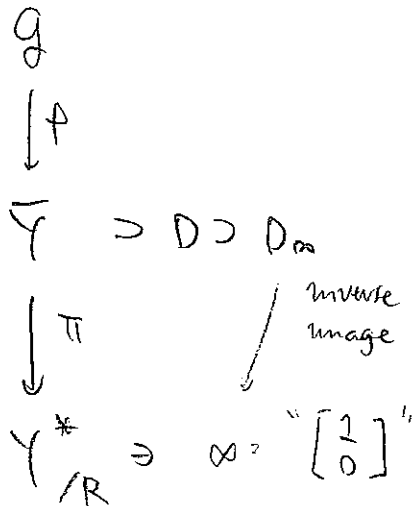 g
↓ p
Ȳ ⊃ D ⊃ D∞
↓ π inverse
image
Y*/R ∋ ∞ = "[1 0]"